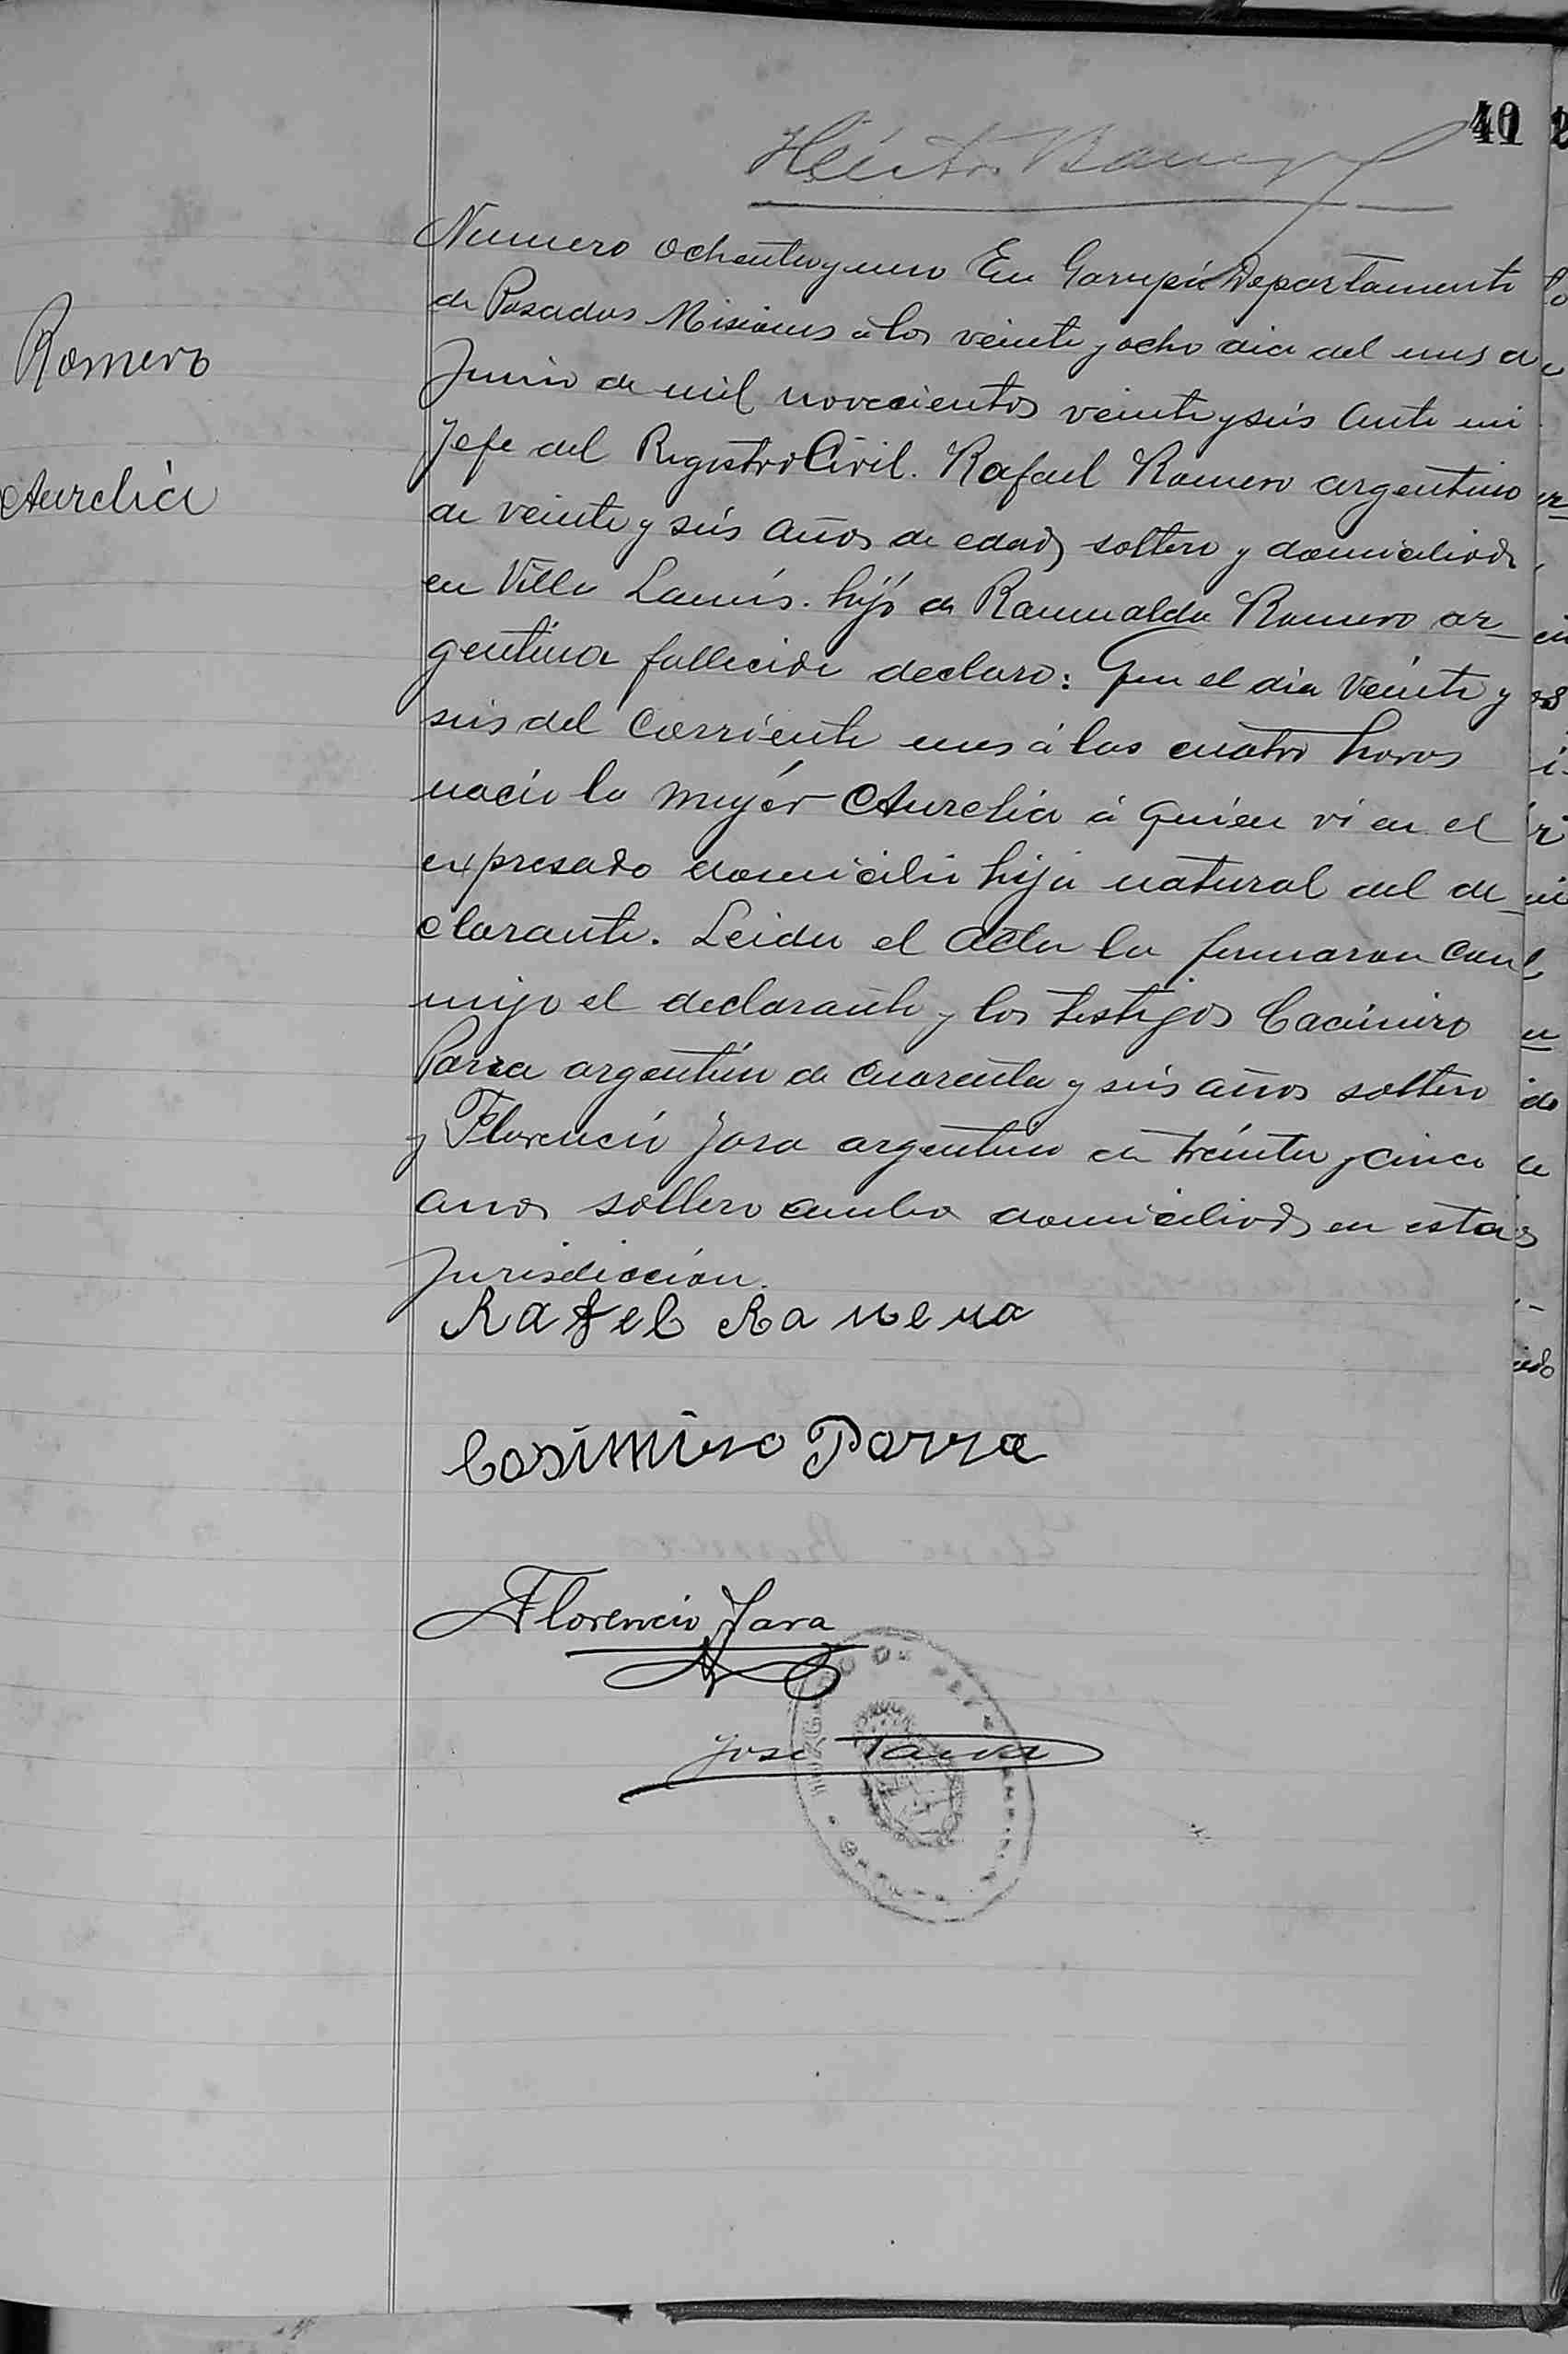 41
Héctor
Numero ochentayuno En Garupá Departamento
de Posadas Misiones á los veinte y ocho dia del mes de
Junio de mil novecientos veinte y seis ante mi
Jefe del Registro Civil. Rafael Romero argentino
de veinte y seis años de edad soltero y domiciliado
en Villa Lanús. hijo de Romualda Romero ar_
gentina fallecida declaro: Que el dia veinte y
seis del corriente mes á las cuatro horas
nació la mujer Aurelia á quien vi en el
expresado domicilio hija natural del de_
clarante. Leida el acta la firmaron con
migo el declarante y los testigos Cacimiro
Parra argentino de cuarenta y seis años soltero
y Florencio Jara argentino de treinta y cinco
anos soltero ambos domiciliados en esta
Jurisdiccion.
Romero
Aurelia
Rafel Romero
Casimiro Parra
Florencio Jara
José Paiva